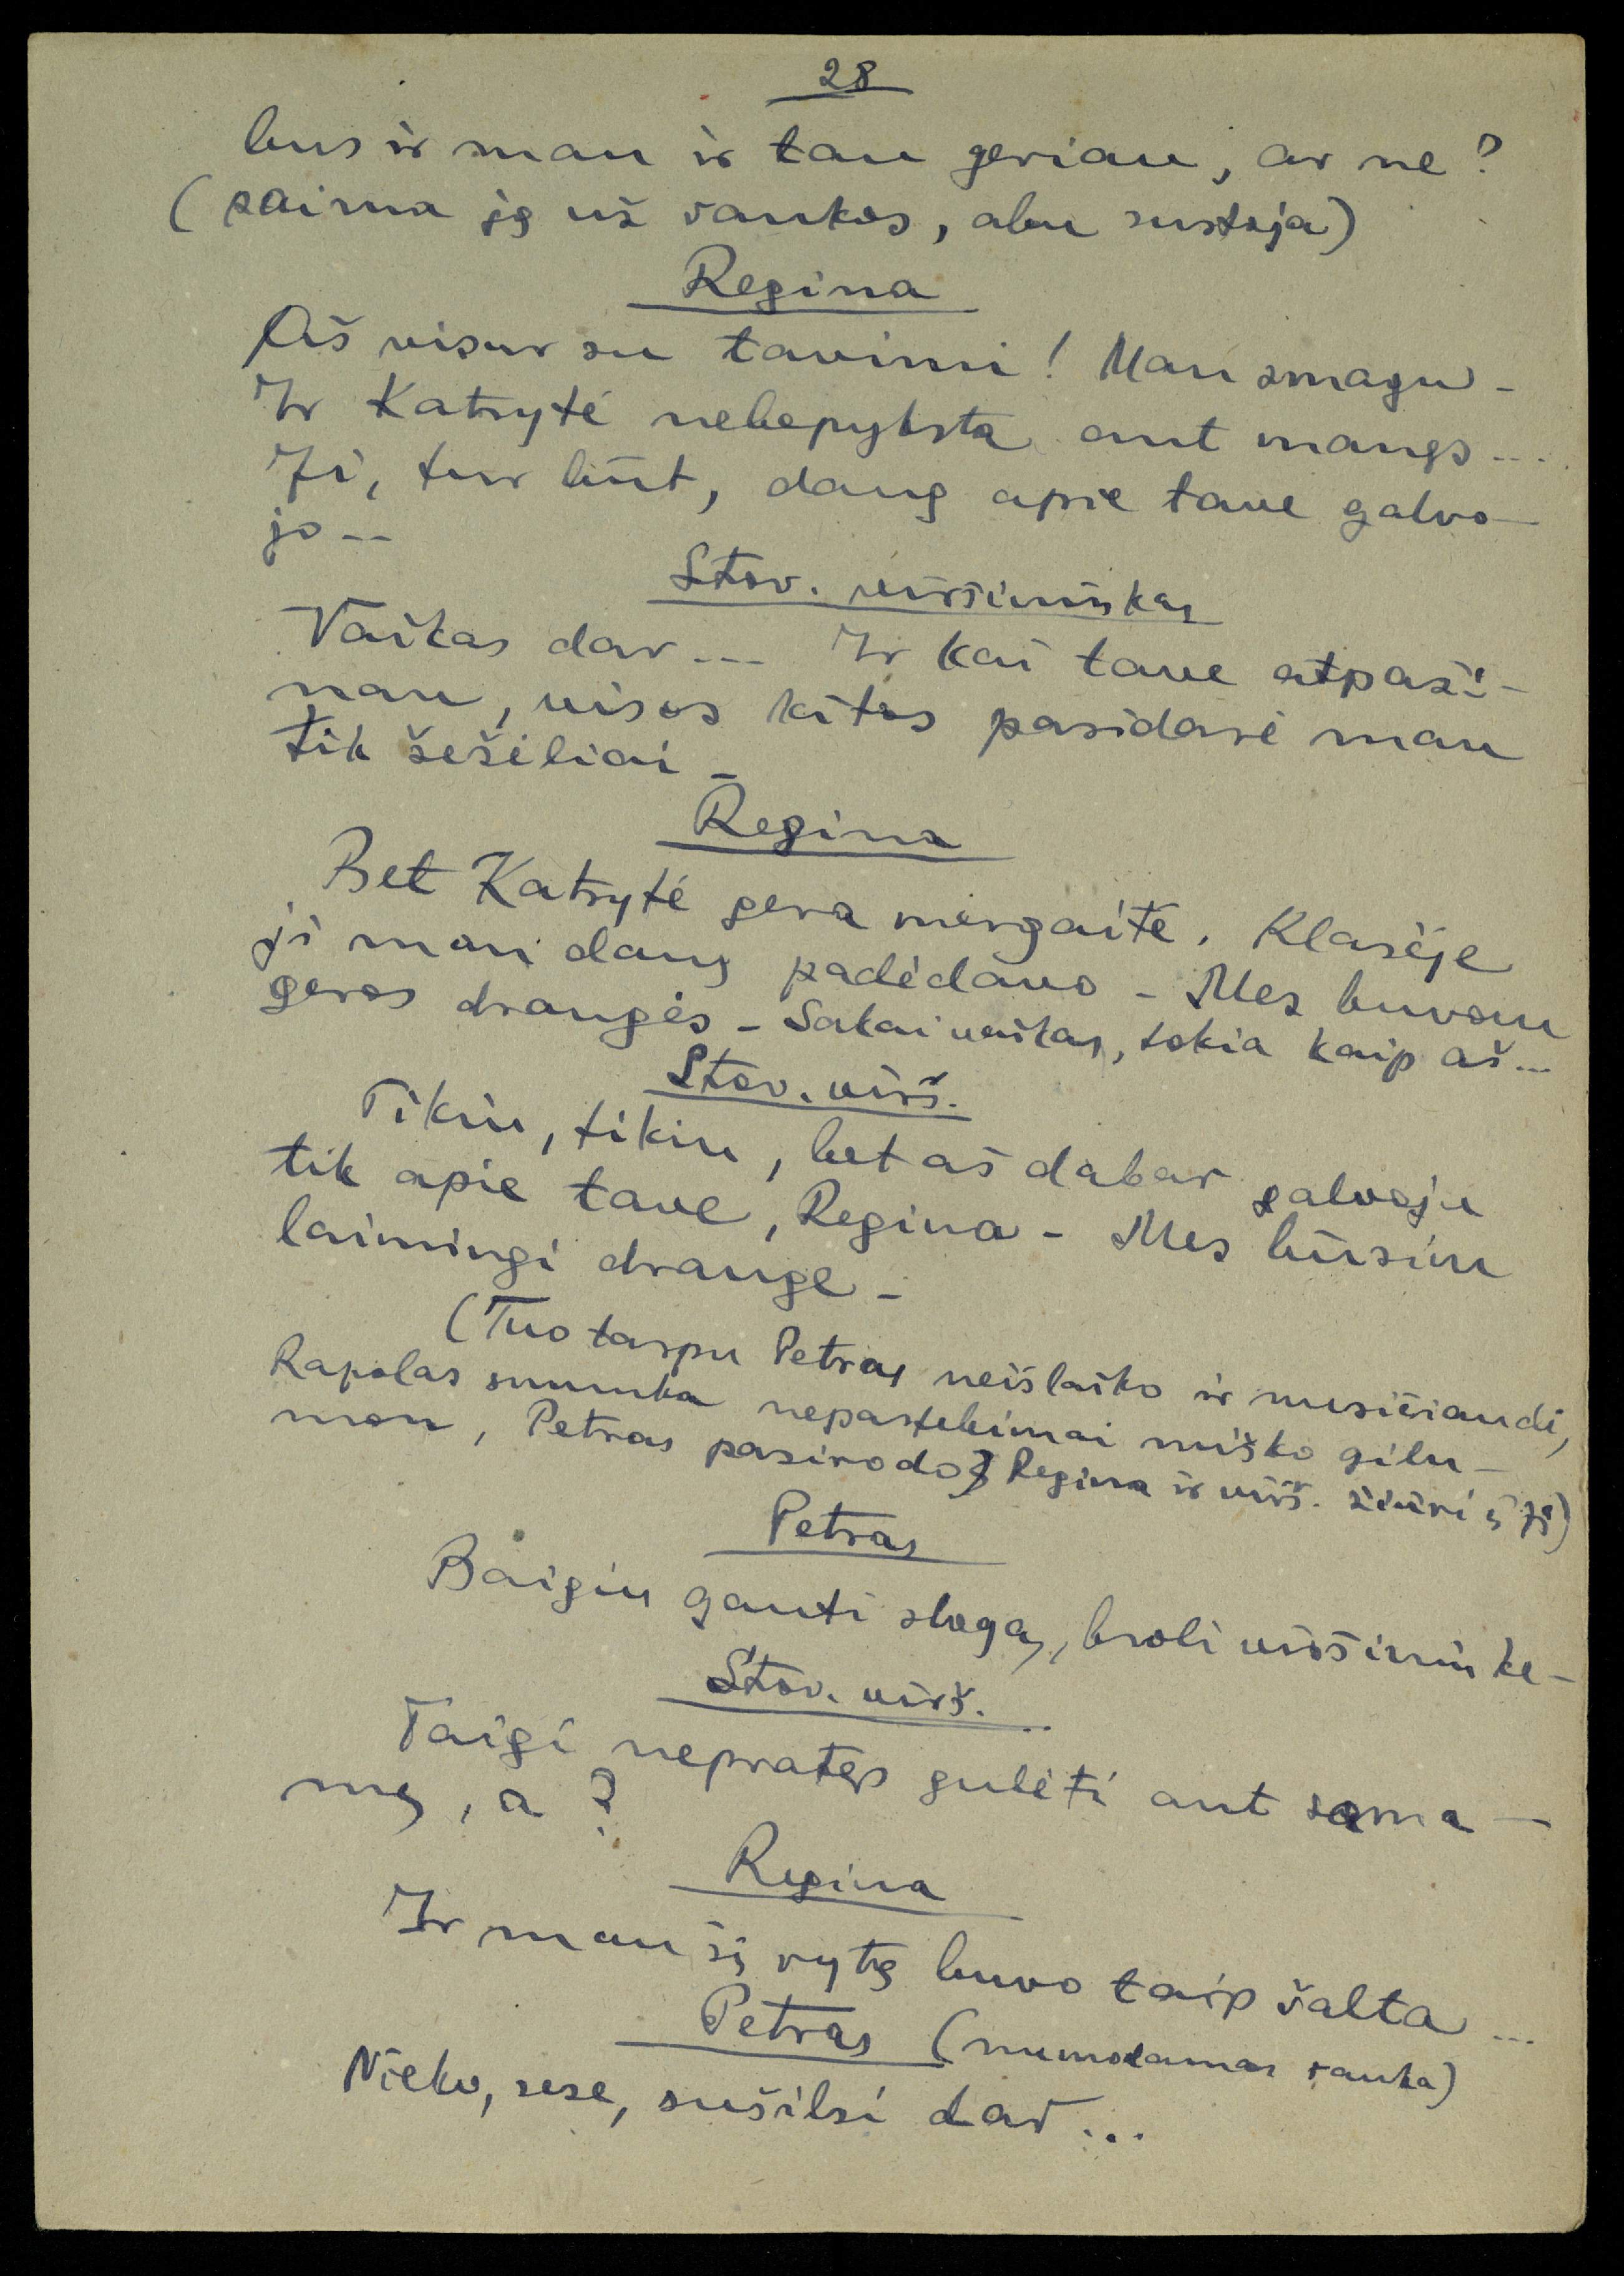 28
bus ir man ir tau geriau, ar ne?
(paima ją už rankos, abu sustoja)
Regina
Aš visur su tavimi! Man smagu -
Ir Katrytė nebepyksta ant manęs...
Ji, tur būt, daug apie tave galvo-
jo --
Stov. viršininkas
Vaikas dar --- Ir kai tave atpaži-
nau, visos kitos pasidarė man
tik šešėliai -
Regina
Bet Katrytė gera mergaitė. Klasėje
ji man daug padėdavo - Mes buvom
geros draugės - Sakai vaikas, tokia kaip aš...
Stov. virš.
Tikiu, tikiu, bet aš dabar galvoju
tik apie tave, Regina - Mes būsim
laimingi drauge -
(Tuo tarpu Petras neišlaiko ir nusičiaudi,
Rapolas smunka nepastebimai miško gilu-
mon, Petras pasirodo, Regina ir virš. žiūri į jį)
Petras
Baigiu gauti slogą, broli viršininke -
Stov. virš.
Taigi nepratęs gulėti ant sama-
nų, a?
Regina
Ir man šį rytą buvo taip šalta...
Petras (numodamas ranka)
Nieko, sese, sušilsi dar...